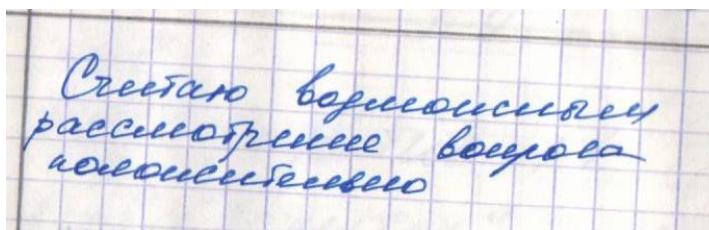 Считаю возможным
рассмотрение вопроса
положительно